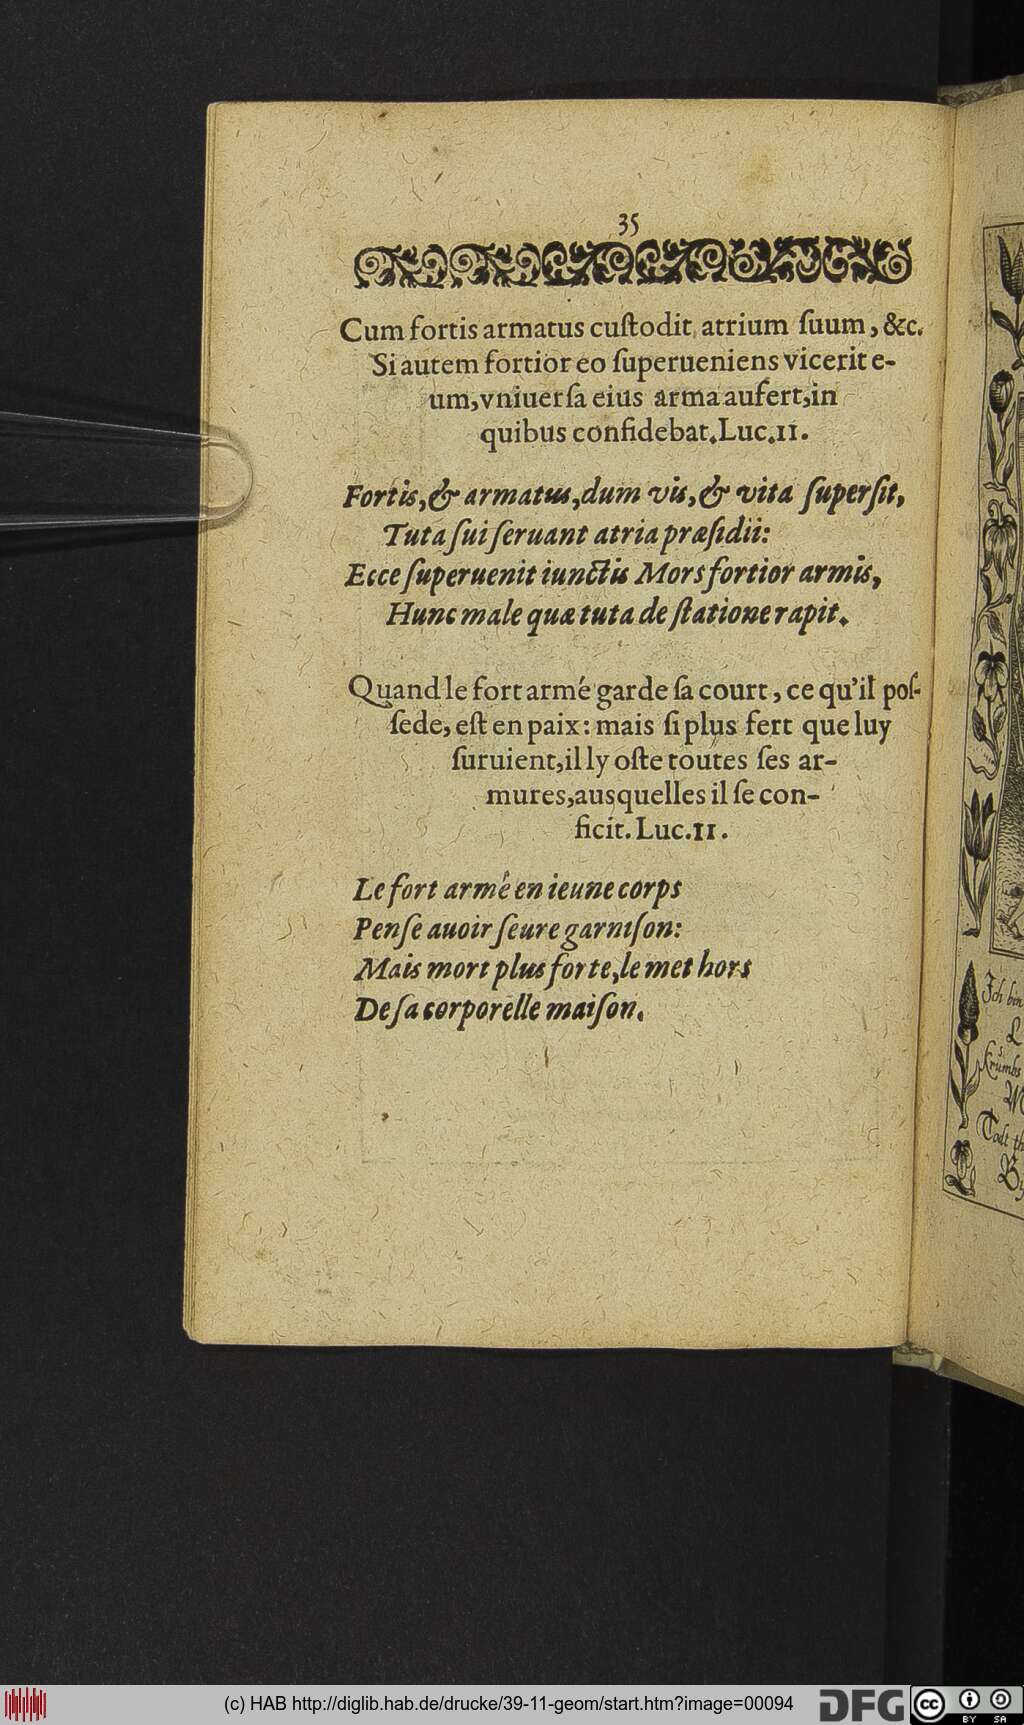 35
Cum fortis armatus cuſtodit atrium ſuum, &c.
Si autem fortior eo ſuperueniens vicerit e-
um, vniuerſa eius arma aufert, in
quibus confidebat. Luc. 11.
Fortis, & armatus, dum vis, & vita ſuperſit,
Tuta ſui ſeruant atria præſidii:
Ecce ſuperuenit iunctis Mors fortior armis,
Hunc male quæ tuta de ſtatione rapit.
Quand le fort armé garde ſa court, ce qu'il poſ-
ſede, eſt en paix: mais ſi plus fert que luy
ſuruient, il ly oſte toutes ſes ar-
mures, ausquelles il ſe con-
ficit. Luc. 11.
Le fort armé en ieune corps
Penſe auoir ſeure garniſon:
Mais mort plus forte, le met hors
De ſa corporelle maiſon.
Ich bin
Krumbs
Todt th
(c) HAB http://diglib.hab.de/drucke/39-11-geom/start.htm?image=00094
DFG
cc
BY SA